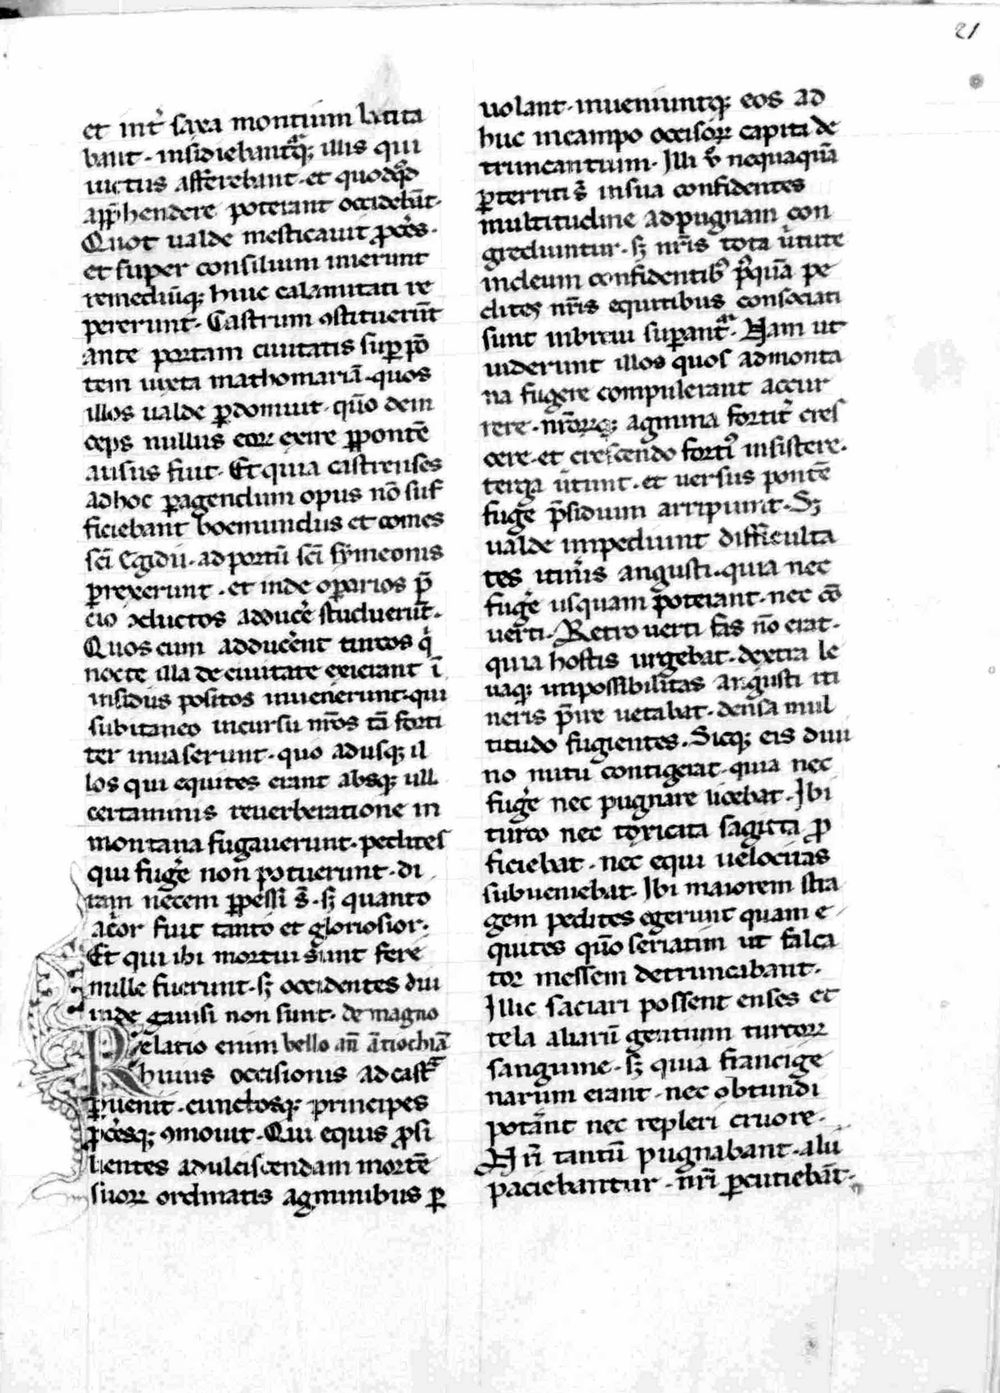 21
et int̉ saxa montium latita
bant. insidiebantᷓqꝫ illis qui
uictus afferebant. et quodqͦd
app̄hendere poterant occidebāt.
Quot ualde mesticauit ꝓcẻs.
et super consilium inierunt
remediūqꝫ huic calamitati re
pererunt. Castrum ꝯstituerūt
ante portam ciuitatis suꝑ pō
tem iuxta mathomariā. quos
illos ualde ꝑdomuit. qūo dein
ceps nullus eoꝝ exire ꝓpontē
ausus fuit. Et quia castrenses
ad hoc ꝑagendum opus nō suf
ficiebant boemundus et comes
sc̄i Egidii. ad portū sc̄i symeonis
ꝑrexerunt. et inde oꝑarios p̄
cio ꝯductos adducẻ studuerūt.
Quos cum adducẻnt turcos q̉
nocte illa de ciuitate exierant ī
insidiis positos inuenerunt. qui
subitaneo incursu nr̄os tā forti
ter inuaserunt. quo adusqꝫ il
los qui equites erant absqꝫ ull
certaminis reuerberatione in
montana fugauerunt. pedites
qui fugẻ non potuerunt. di
ram necem ꝑpessi s̄. sꝫ quanto
acrior fuit tanto et gloriosior.
Et qui ibi mortui sunt fere
mille fuerunt. sꝫ occidentes diu
inde gauisi non sunt. de magno
Relatio enim bello an̄ ātiochiā
huius occisionis ad castᷓ
ꝑuenit. cunctosqꝫ principes
ꝓcẻsqꝫ ꝯmouit. Qui equis ꝓsi
lientes ad ulciscendam mortē
suoꝝ ordinatis agminibus ꝑ
uolant. inueniuntqꝫ eos ad
huc in campo occisoꝝ capita de
truncantium. Illi v̉ nequaquā
ꝑterriti s̄ in sua confidentes
multitudine ad pugnam con
grediuntur. sꝫ nr̄is tota ùtute
in deum confidentibꝰ p̉quā pe
dites nr̄is equitibus consociati
sunt in breui suꝑantᷓ. Nam ut
uiderunt illos quos ad monta
na fugere compulerant accur
rere. nr̄orqꝫ agmina fortit̉ cres
cere. et crescendo fortỉ insistere.
terga ùtunt. et uersus pontē
fuge p̄sidium arripiunt. Sꝫ
ualde impediunt difficulta
tes itin̉is angusti. quia nec
fugẻ usquam poterant. nec cō
uerti. Retro uerti fas nō erat.
quia hostis urgebat. dextra le
uaqꝫ impossibilitas angusti iti
neris p̄ire uetabat. densa mul
titudo fugientes. Sicqꝫ eis diui
no nutu contigerat. quia nec
fugẻ nec pugnare licebat. Ibi
turco nec toxicata sagitta ꝓ
ficiebat. nec equi uelocitas
subueniebat. Ibi maiorem stra
gem pedites egerunt quam e
quites qūo seriatim ut falca
tor messem detruncabant.
Illic saciari possent enses et
tela aliarū gentium turcoꝝ
sanguine. sꝫ quia francige
narum erant. nec obtundi
poterant nec repleri cruore.
Nr̄i tantū pugnabant. alii
paciebantur. nr̄i ꝑcutiebāt.